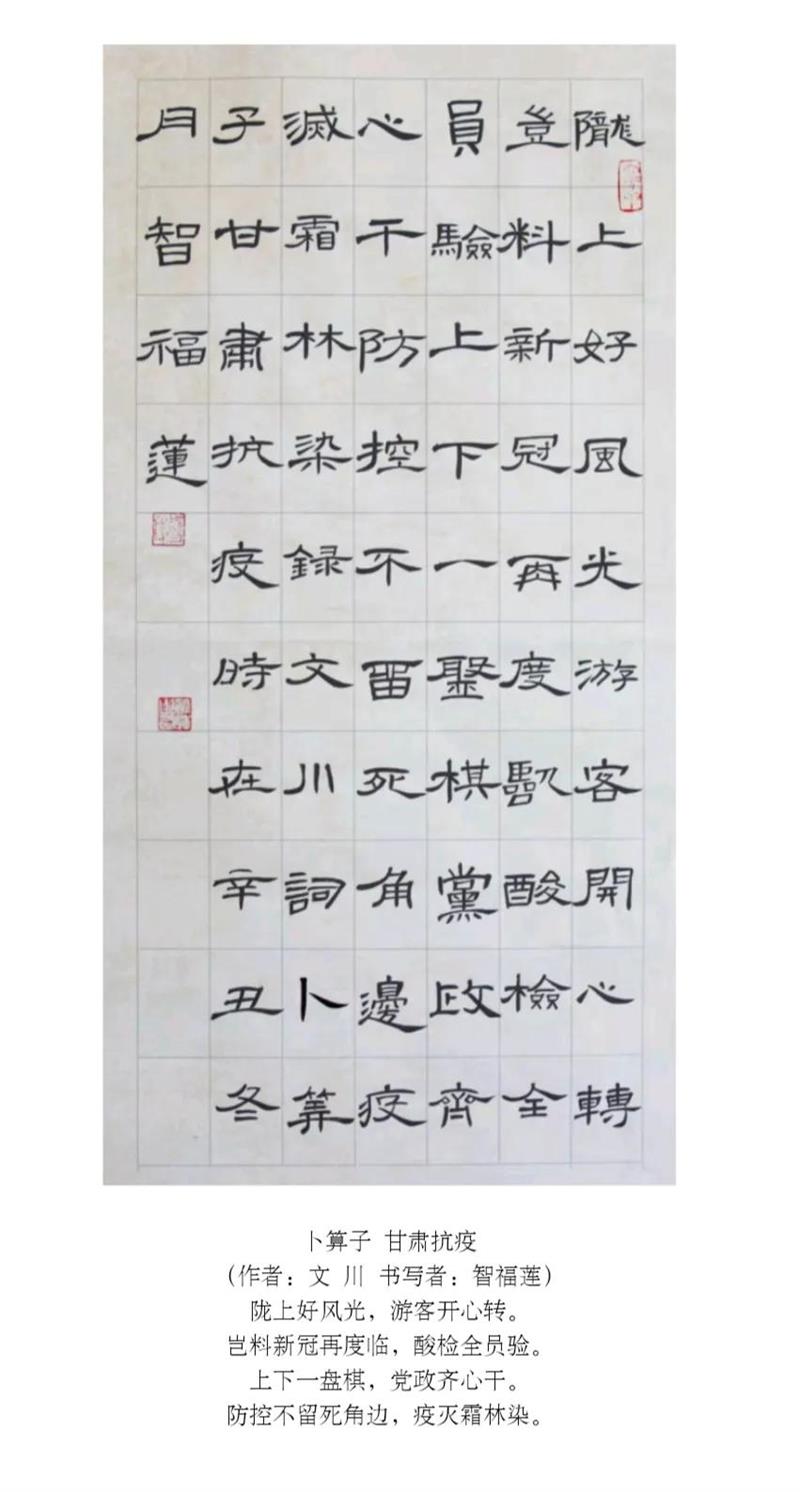 隴上好風光游客開心轉
豈料新冠再度臨酸檢全
員驗上下一盤棋黨政齊
心干防控不留死角邊疫
滅霜林染錄文川詞卜算
子甘肅抗疫時在辛丑冬
月智福蓮
卜算子 甘肃抗疫
（作者：文 川 书写者：智福莲）
陇上好风光，游客开心转。
岂料新冠再度临，酸检全员验。
上下一盘棋，党政齐心干。
防控不留死角边，疫灭霜林染。